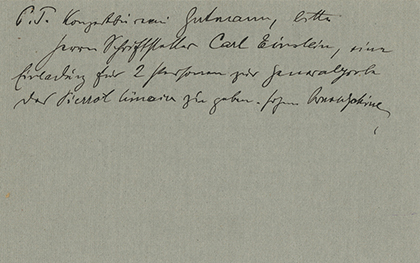 P.T. Konzertbureau Gutmann, bitte
Herrn Schriftsteller Carl Einstein, eine
Einladung für 2 Personen zur Generalprobe
des Pierrot lunaire zu geben.